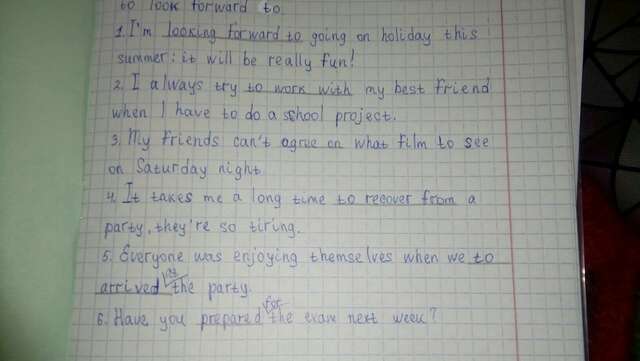 to look forward to
1. I'm looking forward to going on holiday this
summer: it will be really fun!
2. I always try to work with my best friend
when I have to do a school project.
3. My friends can't agrue on what film to see
on Saturday night.
4. It takes me a long time to recover from a
party, they're so tiring.
5. Everyone was enjoying themselves when we to
arrived at the party.
6. Have you prepared for the exam next week?